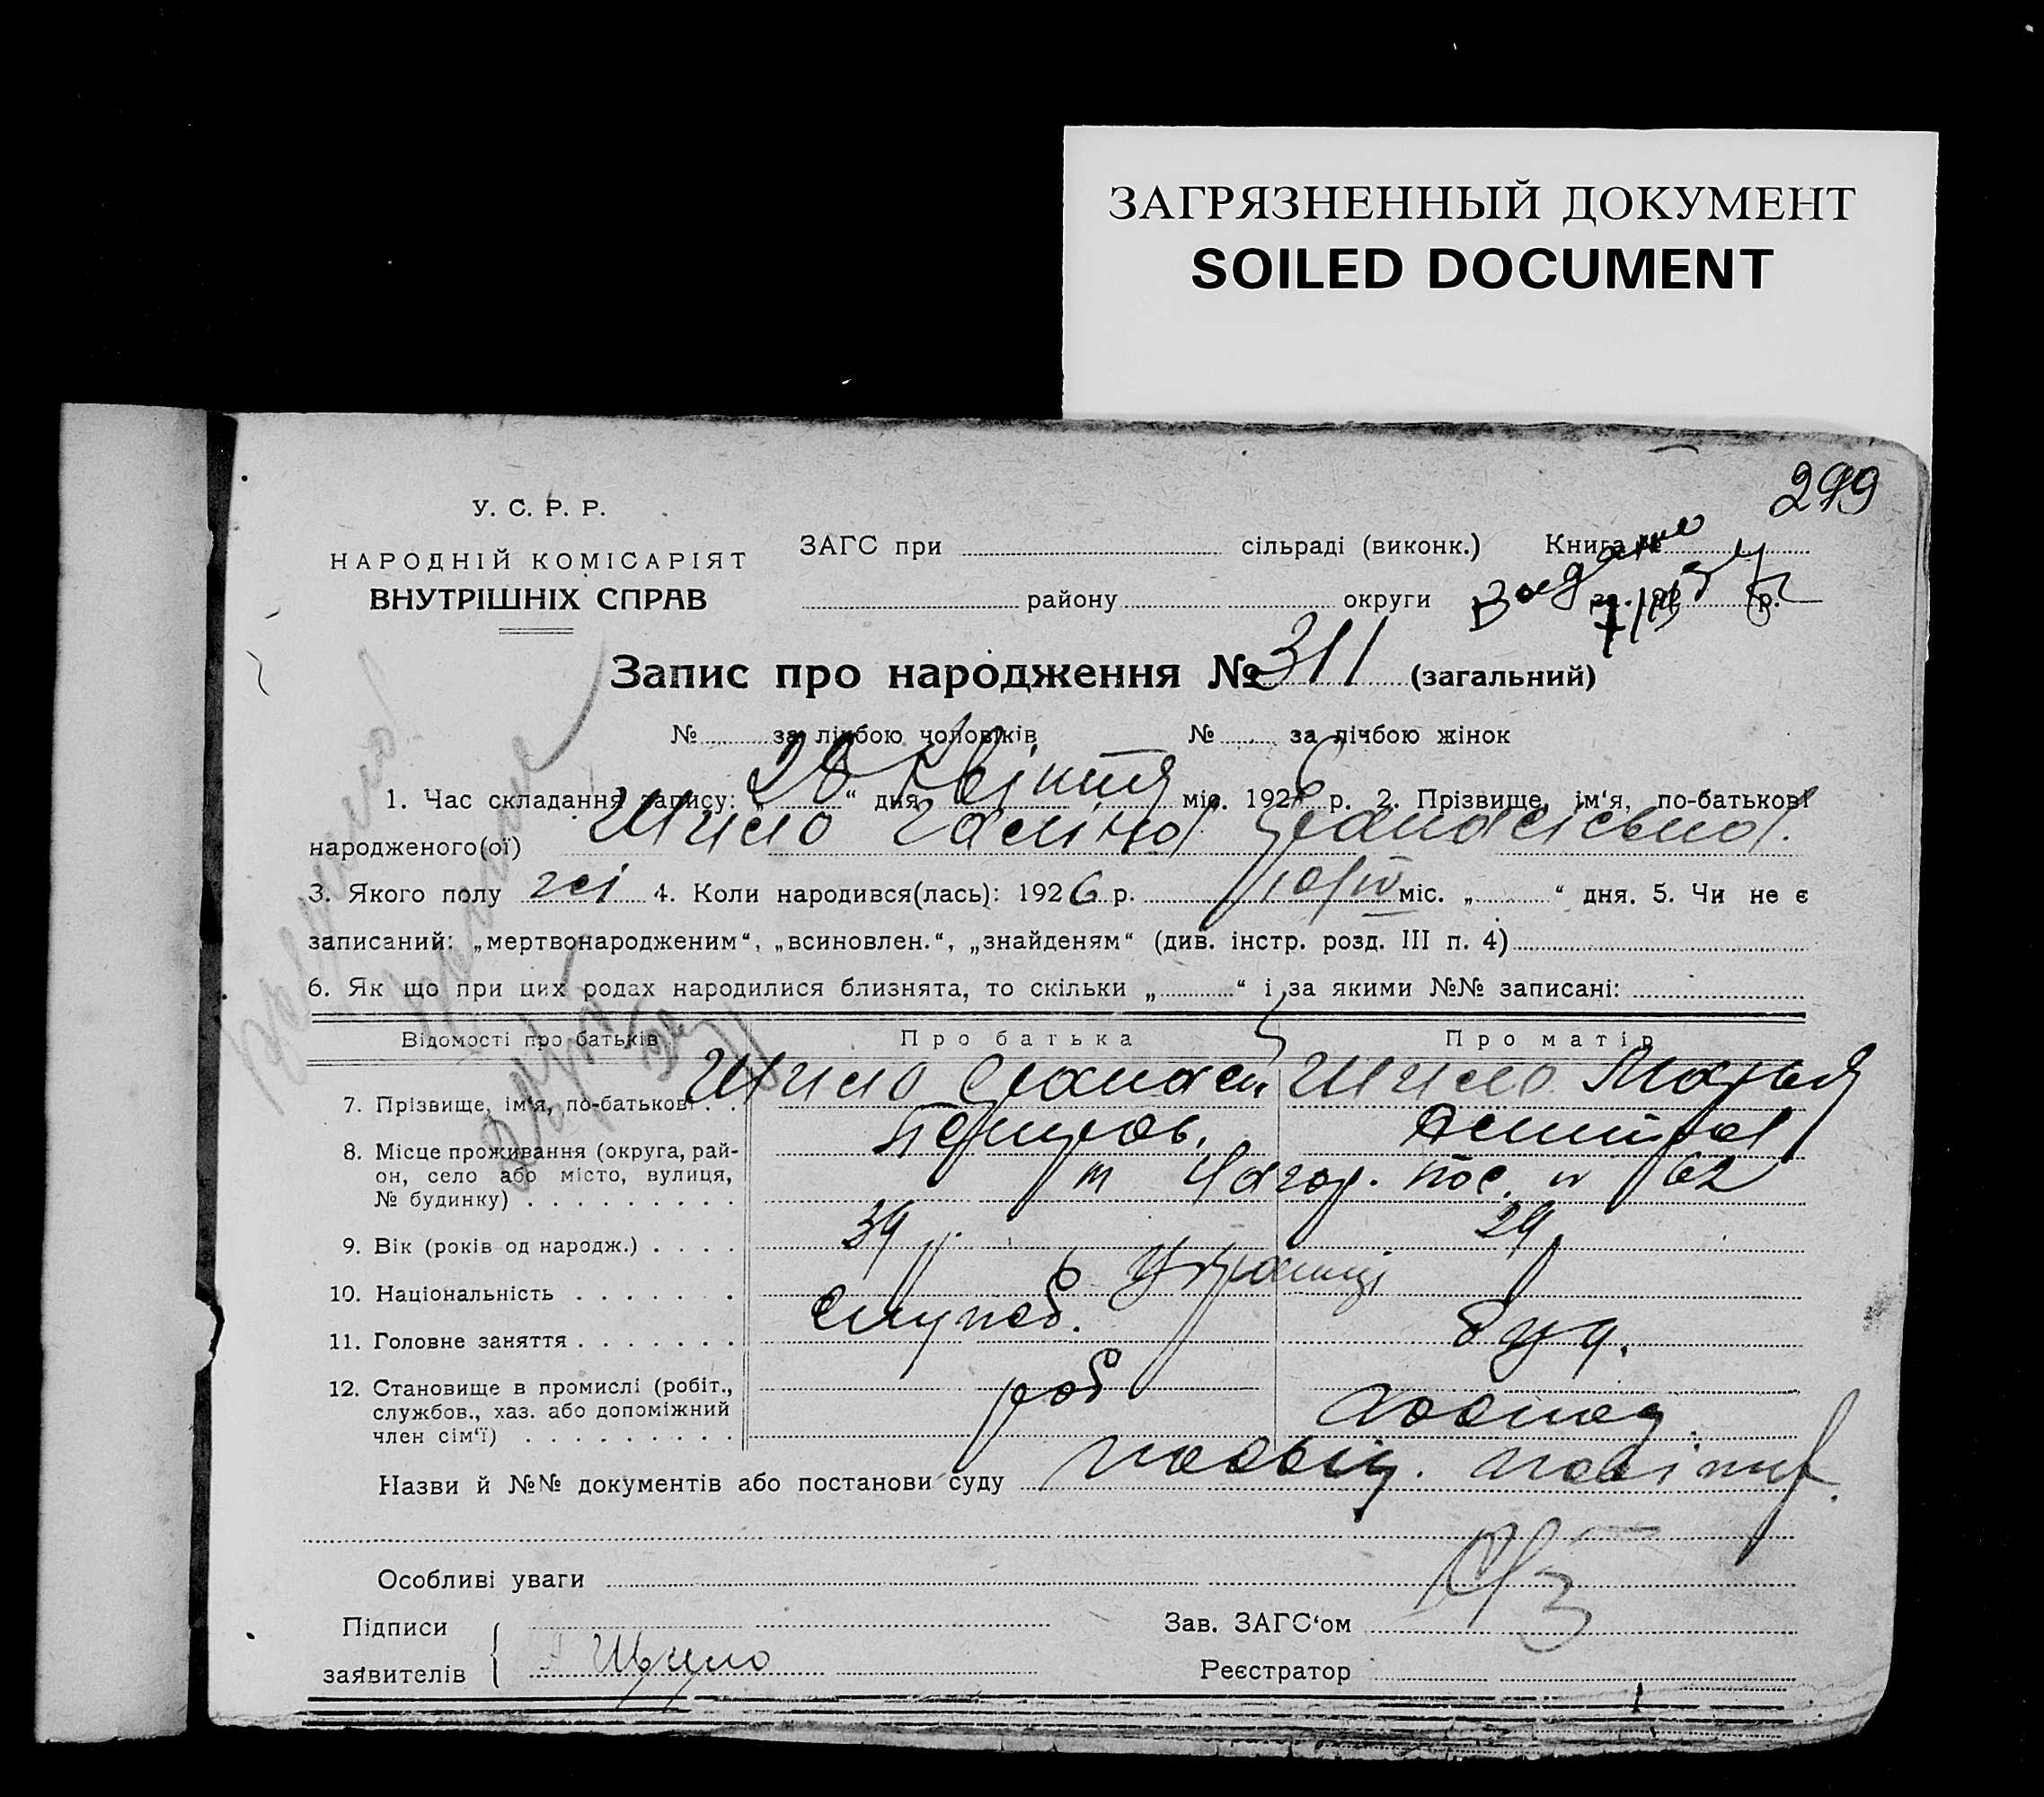 ЗАГРЯЗНЕННЫЙ ДОКУМЕНТ
SOILED DOCUMENT
299
У. С. Р. Р.
НАРОДНІЙ КОМІСАРІЯТ
ВНУТРІШНІХ СПРАВ
ЗАГС при сільраді (виконк.) Книга №
району округи р.
Запис про народження № 311 (загальний)
№ за лічбою чоловіків № за лічбою жінок
1. Час складання запису: „28“ дня Квітня міс. 1926 р. 2. Прізвище, ім‘я, по-батькові
народженого(ої) Шило Галина
3. Якого полу жі 4. Коли народився(лась): 1926 р. 10/IV міс. „ “ дня. 5. Чи не є
записаний: „мертвонародженим“, „всиновлен.“, „знайденям“ (див. інстр. розд. III п. 4)
6. Як що при цих родах народилися близнята, то скільки „ “ і за якими №№ записані:
Відомості про батьків Про батька Про матір
7. Прізвище, ім‘я, по-батькові . . Шило Шило Марья
8. Місце проживання (округа, рай-
он, село або місто, вулиця,
№ будинку) . . . . . . . . . пос. 62
9. Вік (років од народж.) . . . . 39 29
10. Національність . . . . . . . Українці
11. Головне заняття . . . . . . .
12. Становище в промислі (робіт.,
службов., хаз. або допоміжний
член сім‘ї) . . . . . . . . . роб
Назви й №№ документів або постанови суду посвід.
Особливі уваги
Підписи
заявителів Шило
Зав. ЗАГС‘ом
Реєстратор